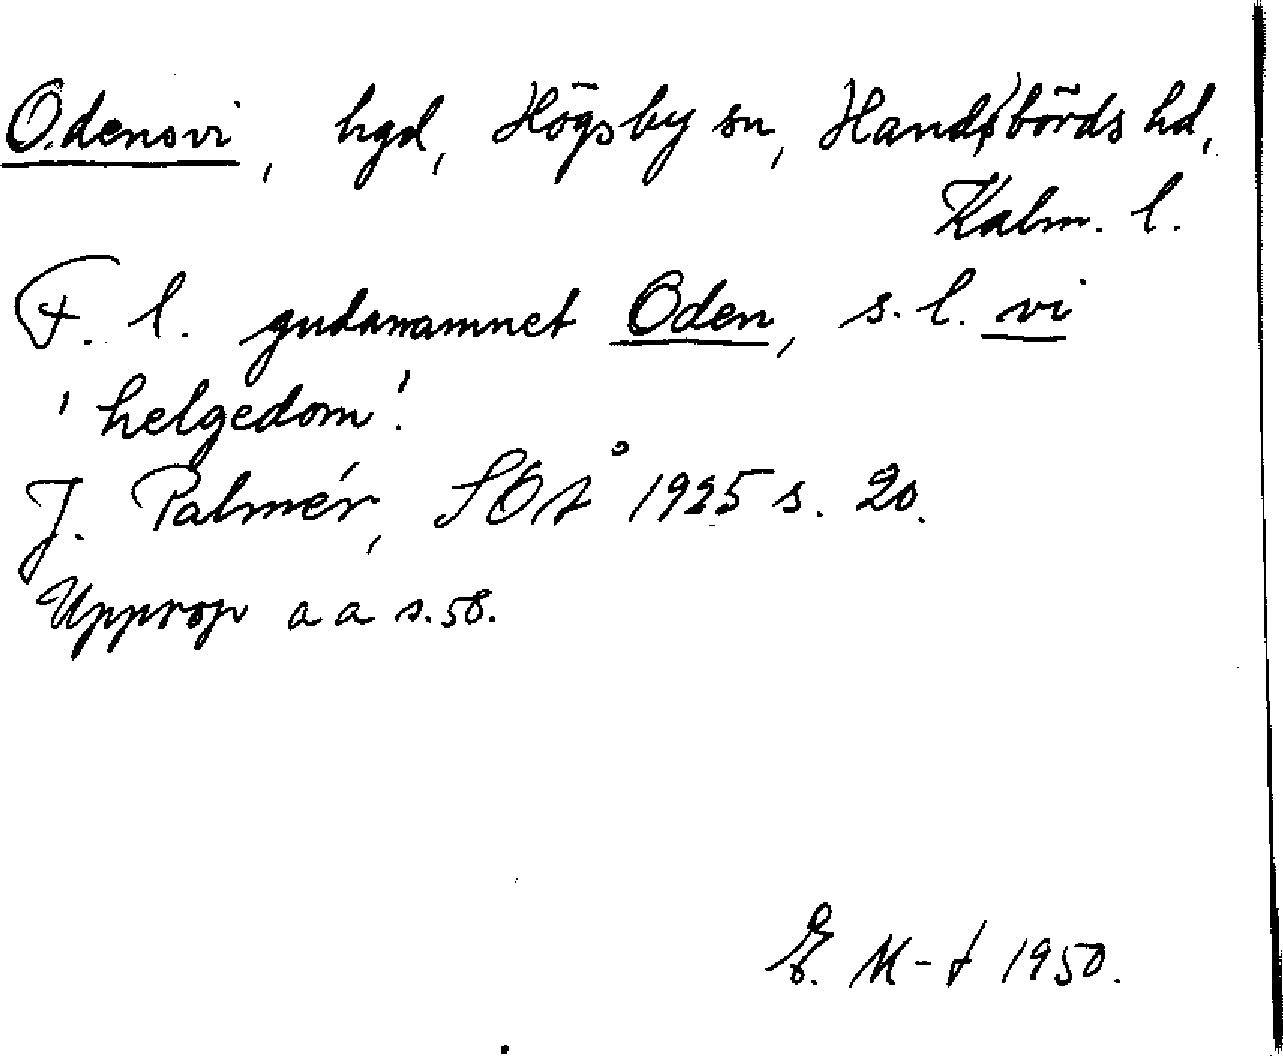 Odensvi, hgd, Högsby sn, Handbörds hd,
Kalm. l.
F. l. gudanamnet Oden, s. l. vi
'helgedom'.
J. Palmér, SOÅ 1925 s. 20.
Upprop a a s. 58.
E. M-t 1950.